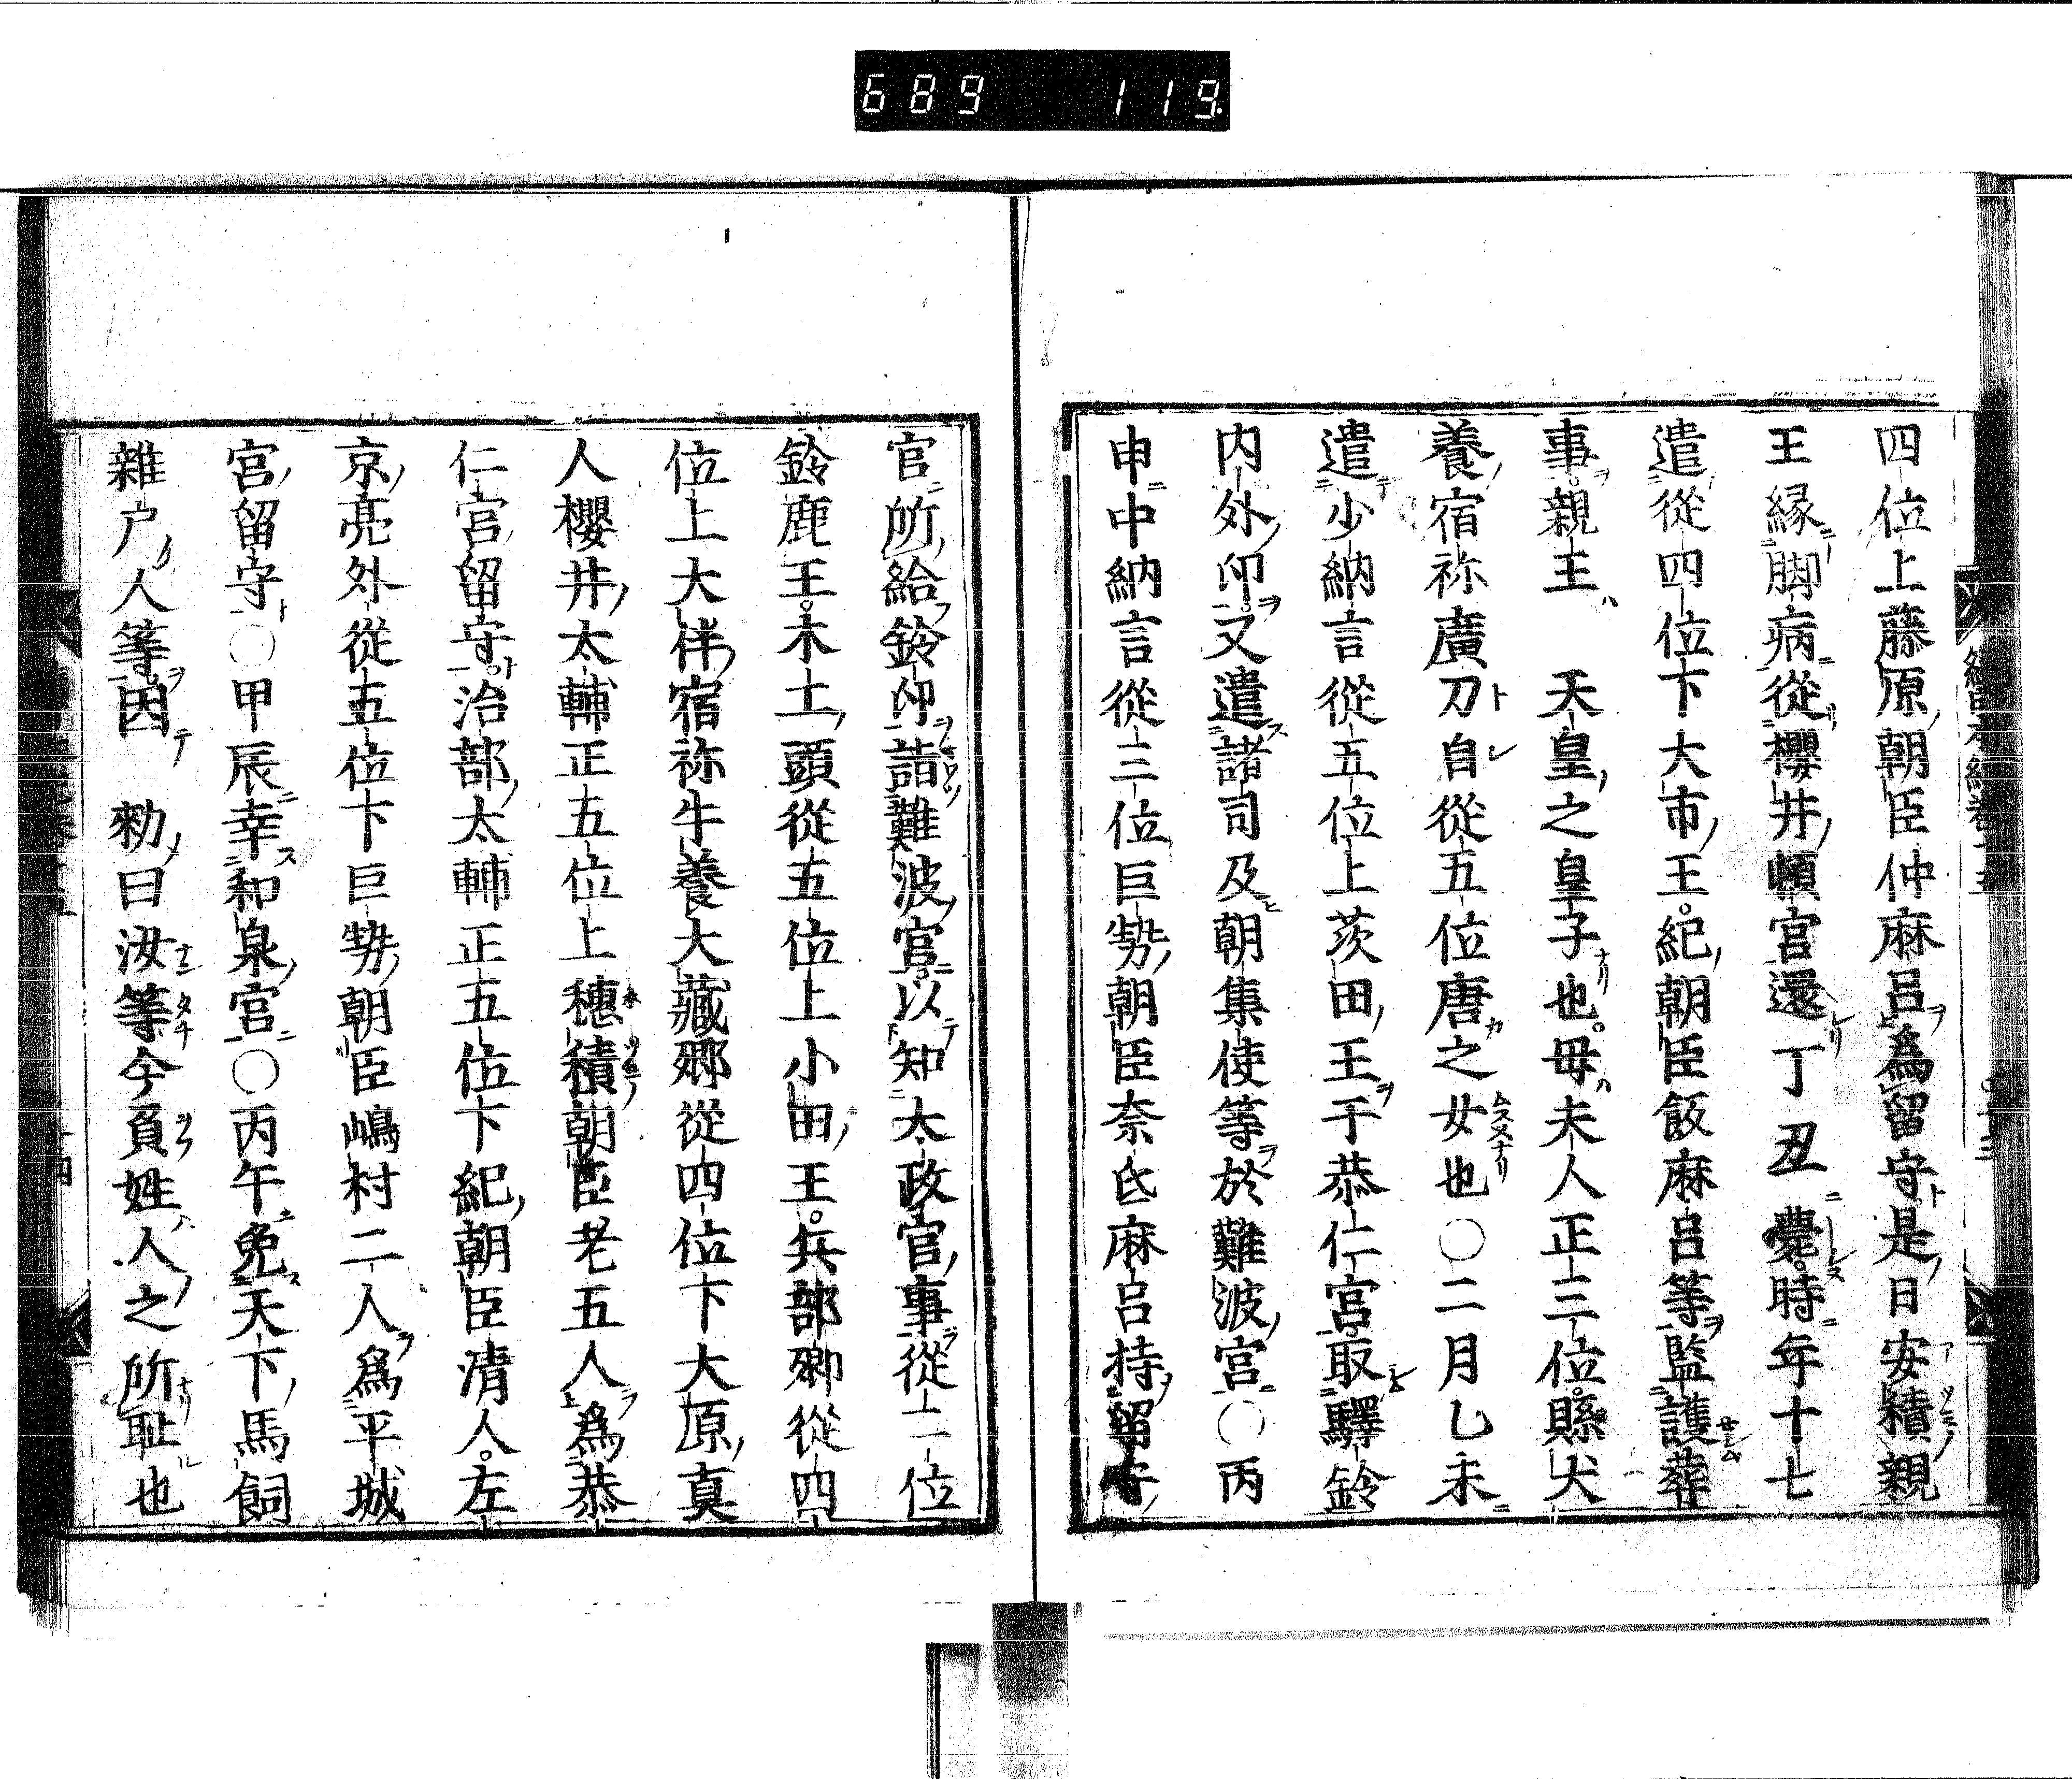 689 119
四位上藤原朝臣仲麻呂爲留守是日安積親
王縁脚病從櫻井頓宮還丁丑薨時年十七
遣從四位下大市王紀朝臣飯麻呂等監護葬
事親王 天皇之皇子也母夫人正三位縣犬
養宿祢廣刀自從五位唐之女也○二月乙未
遣少納言從五位上茨田王于恭仁宮取驛鈴
内外印又遣諸司及朝集使等於難波宮○丙
申中納言從三位巨勢朝臣奈氐麻呂持留守
官所給鈴印詣難波宮以知太政官事從二位
鈴鹿王木工頭從五位上小田王兵部卿從四
位上大伴宿祢牛養大藏卿從四位下大原真
人櫻井太輔正五位上穗積朝臣老五人爲恭
仁宮留守治部太輔正五位下紀朝臣清人左
京亮外從五位下巨勢朝臣嶋村二人爲平城
宮留守○甲辰幸和泉宮○丙午免天下馬飼
雜戸人等因 勅曰汝等今負姓人之所耻也